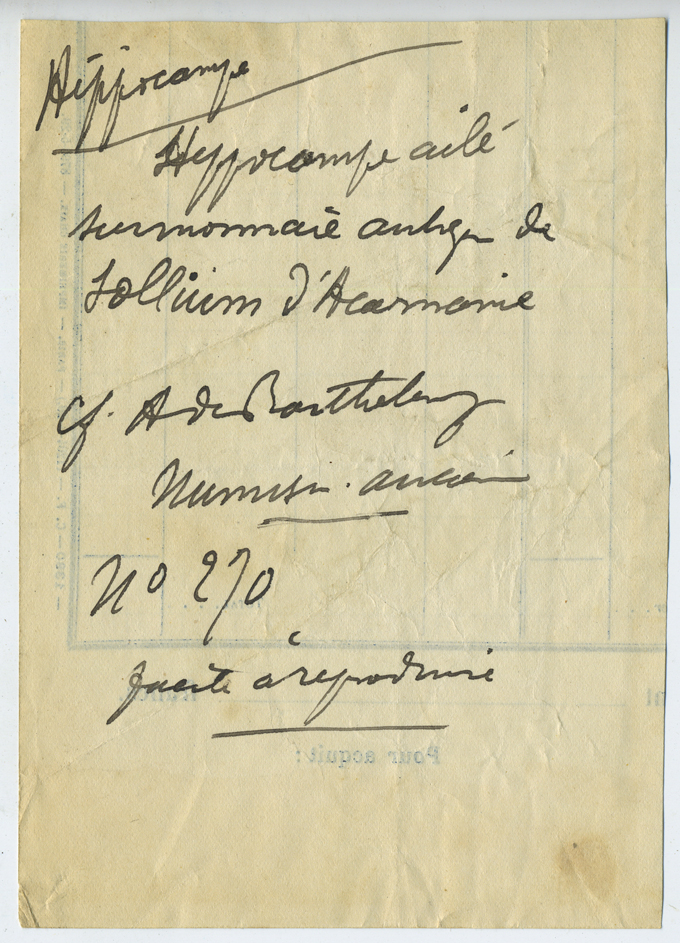 Hippocampe
Hyppocampe ailé
sur monnaie antique de
Sollium d'Acarnanie
cf. A de Barthelemy
Numism. ancien
No 270
facile à reproduire
Pour acquit :